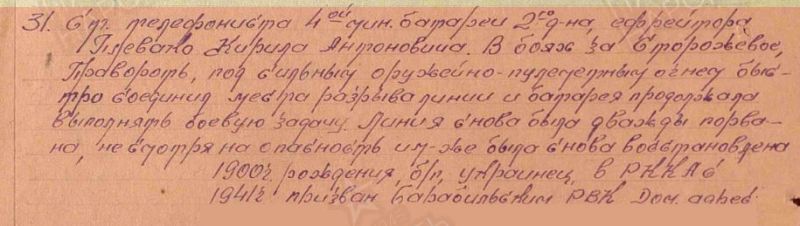 31. Стр. телефониста 4ой мин. батареи 2го д-на, ефрейтора
Плевако Кирила Антоновича. В боях за Сторожевое,
Правороть, под сильным оружейно-пулеметным огнем быс-
тро соединил места разрыва линии и батарея продолжала
выполнять боевую задачу. Линия снова была дважды порва-
на, несмотря на опасность им-же была снова восстановлена
1900г. рождения, б/п, украинец, в РККА с
1941г призван Барабильским РВК Дом. адрес